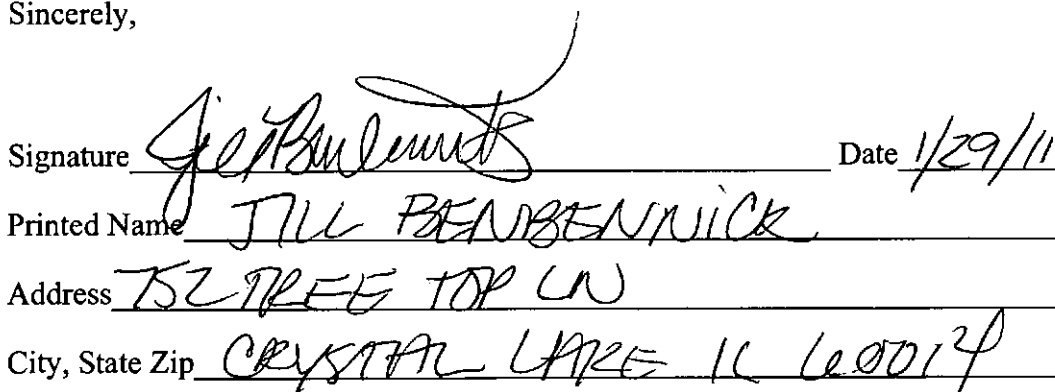 Sincerely,
Signature Jill Benbennick Date 1/29/11
Printed Name JILL BENBENNICK
Address 752 TREE TOP LN
City, State Zip CRYSTAL LAKE IL 60014